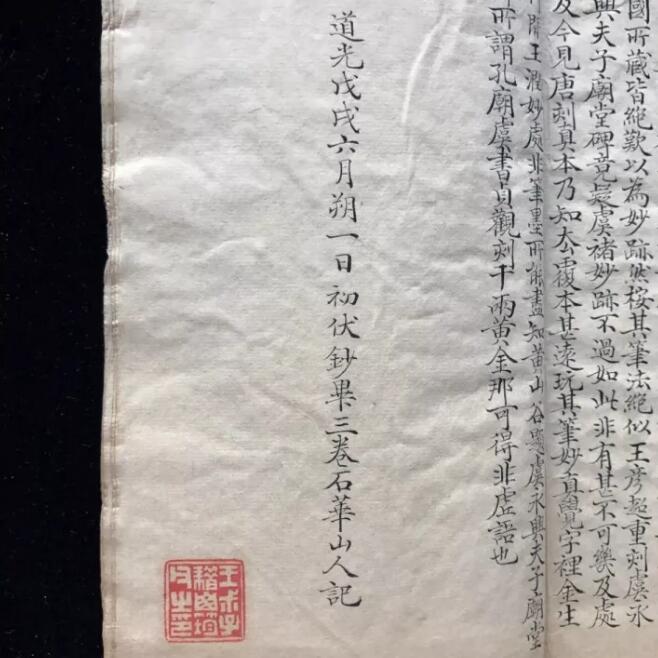 國所藏皆絕歎以為妙跡然按其筆法絕似王彥超重刻虞永
興夫子廟堂碑竟疑虞褚妙跡不過如此非有甚不可幾及處
及今見唐刻真本乃知去覆本甚遠玩其筆妙真覺字裡金生
行間玉潤妙處非筆墨所能盡知黃山谷題虞永興夫子廟堂
所謂孔廟虞書貞觀刻千兩黃金那可得非虛語也
道光戊戌六月朔一日初伏鈔畢三卷石華山人記